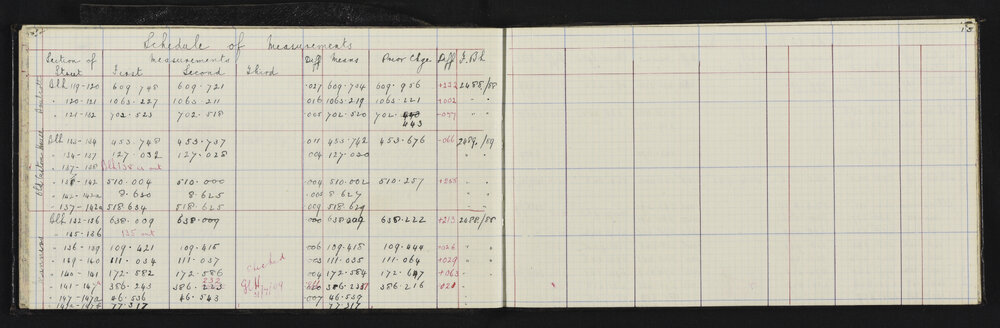 Schedule of Measurements
Section of Street Measurements First Second Third Diff Means Prior Chge Diff F. Bk
Blk 119-120 609.748 609.721 .027 609.734 609.956 +.222 2488/58
" 120-121 1063.227 1063.211 016 1063.219 1063.221 +002 " "
" 121-122 702.523 702.518 005 702.520 702.
443 -.077 " "
Blk 133-134 453.748 453.737 011 453.742 453.676 -066 2489/59
" 134-137 127.032 127.028 004 127.030 " "
" 137-138 Blk 138 is out
" 138-142 510.004 510.000 .004 510.002 510.257 +255 " "
" 142-142a 8.630 8.625 .005 8.627 " "
" 137-142a 518.634 518.625 009 518.629
Blk 132-136 638.009 638.009 000 638.009 638.222 +213 2488/58
" 135-136 135 out
" 136-139 109.421 109.415 006 109.418 109.444 +026 " "
" 139-140 111.034 111.037 .003 111.035 111.064 +029 "
" 140-141 172.582 172.586 004 172.584 172.647 +063 "
" 141-147a 386.243 386.223 386.216
233
" 147-147a 46.536 46.543 .007 46.539
77.317 77.317
Checked
15